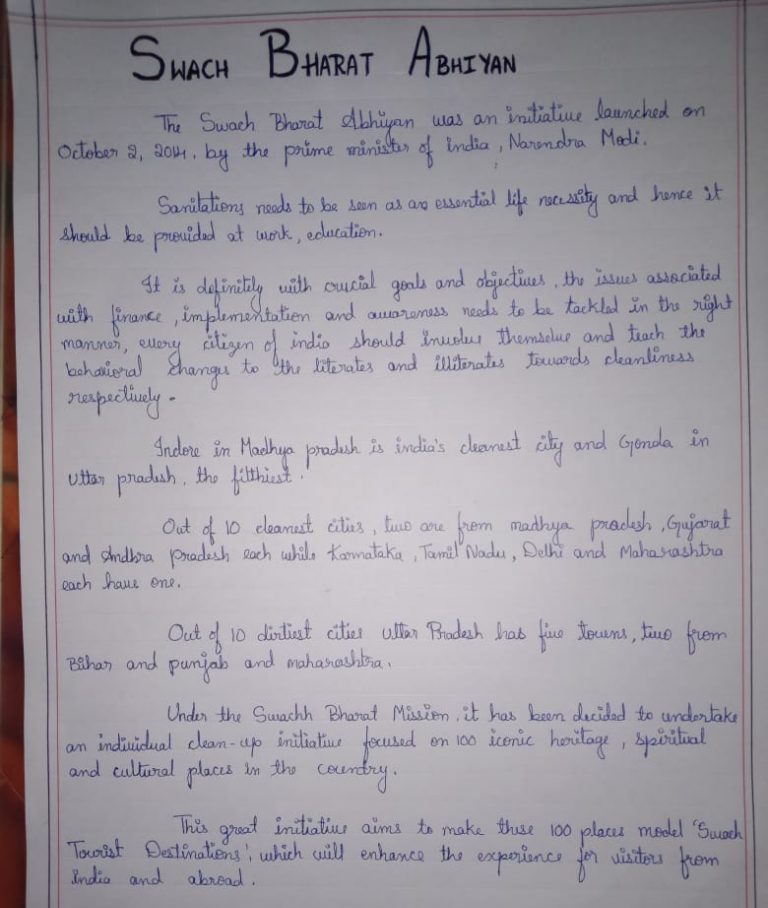 SWACH BHARAT ABHIYAN
The Swach Bharat Abhiyan was an initiative launched on
October 2, 2014, by the prime minister of india, Narendra Modi.
Sanitations needs to be seen as an essential life necessity and hence it
should be provided at work, education.
It is definitely with crucial goals and objectives, the issues associated
with finance, implementation and awareness needs to be tackled in the right
manner, every citizen of india should involve themselve and teach the
behavioral changes to the literates and illiterates towards cleanliness
respectively.
Indore in Madhya pradesh is india's cleanest city and Gonda in
Uttar pradesh, the filthiest.
Out of 10 cleanest cities, two are from madhya pradesh, Gujarat
and Andhra Pradesh each while Karnataka, Tamil Nadu, Delhi and Maharashtra
each have one.
Out of 10 dirtiest cities Uttar Pradesh has five towns, two from
Bihar and punjab and maharashtra.
Under the Swachh Bharat Mission, it has been decided to undertake
an individual clean-up initiative focused on 100 iconic heritage, spiritual
and cultural places in the country.
This great initiative aims to make these 100 places model 'Swach
Tourist Destinations', which will enhance the experience for visitors from
India and abroad.